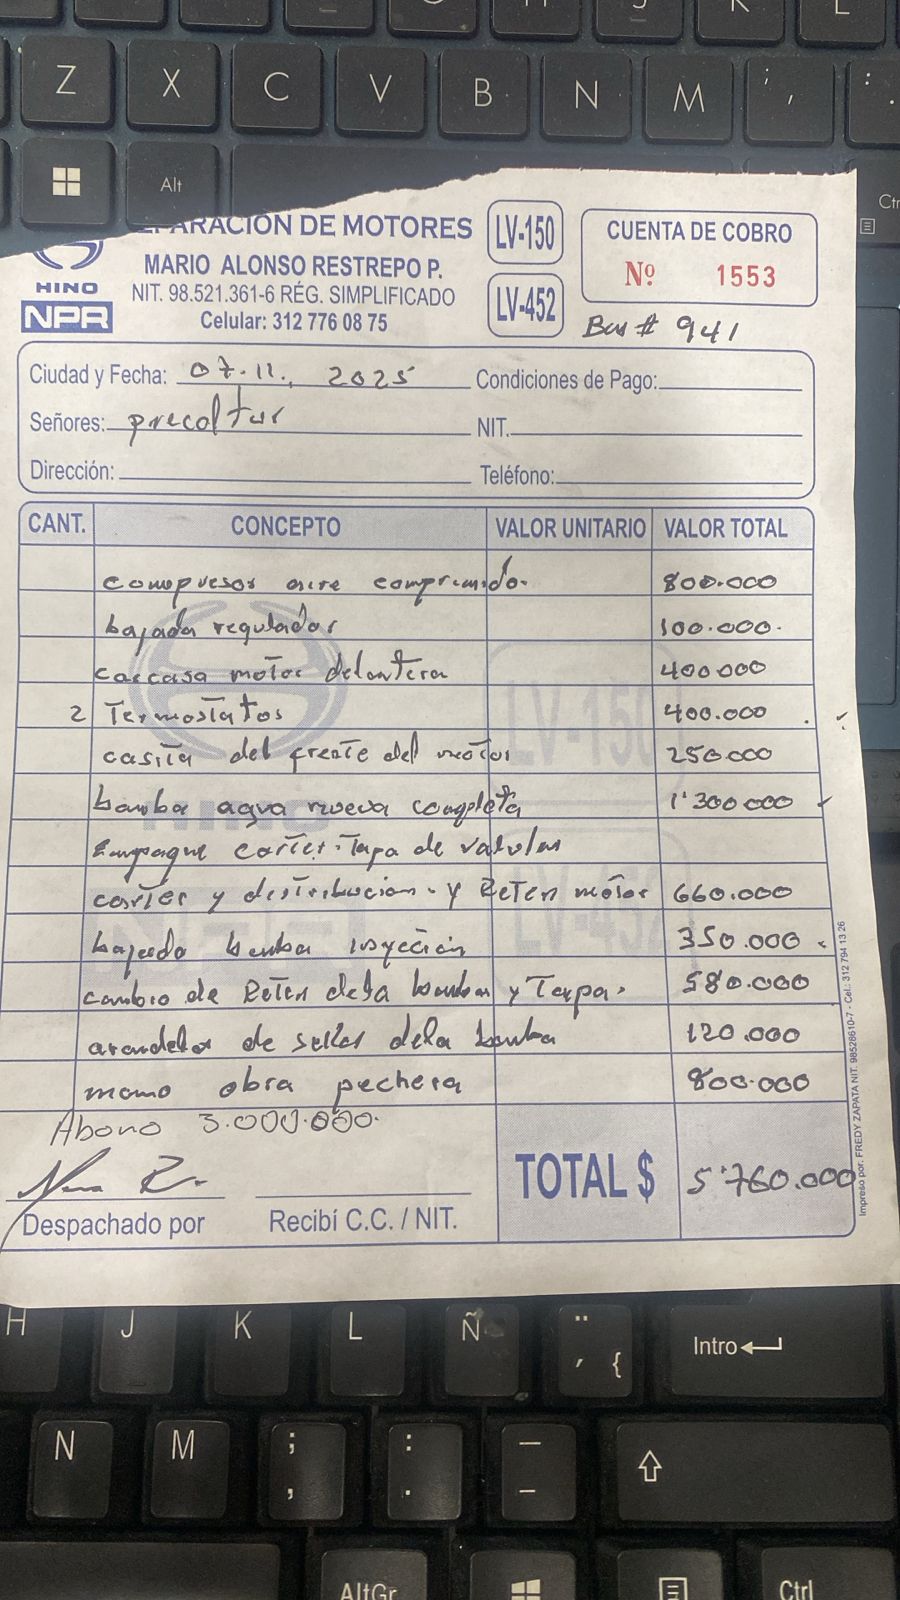 Z X C V B N M ; , :
Alt
Ctr
PARACIÓN DE MOTORES
HINO
NPR
MARIO ALONSO RESTREPO P.
NIT. 98.521.361-6 RÉG. SIMPLIFICADO
Celular: 312 776 08 75
LV-150
LV-452
CUENTA DE COBRO
Nº 1553
Bus # 941
Ciudad y Fecha: 07.11., 2025 Condiciones de Pago:
Señores: precoltur NIT.
Dirección: Teléfono:
CANT. CONCEPTO VALOR UNITARIO VALOR TOTAL
compresor aire comprimido. 800.000
bajada regulador 100.000.
carcasa motor delantera 400000
2 Termostatos 400.000
casita del frente del motor 250.000
bomba agua nueva completa 1'300000
Empaque carter. Tapa de valvulas
carter y distribucion. y Reten motor 660.000
bajada bomba inyección 350.000
cambio de Reten dela bomba y Tapa. 580.000
arandelas de sellos dela bomba 120.000
mano obra pechera 800.000
Abono 3.000.000.
TOTAL $ 5'760.000
Despachado por Recibí C.C. / NIT.
Impreso por: FREDY ZAPATA NIT. 98528610-7 - Cel.: 312 794 13 26
LV-150
HINO
LV-452
H J K L Ñ ¨ ´ { Intro
N M ; , : . — –
AltGr Ctrl